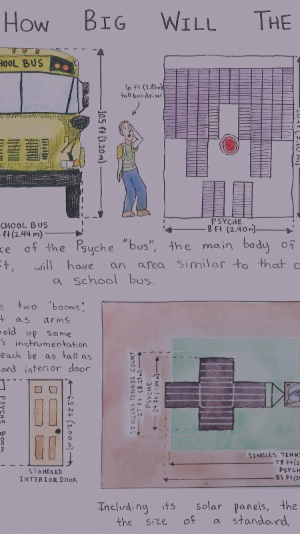 HOW BIG WILL THE
HOOL BUS
10.5 ft (3.20m)
6 ft (1.83m)
tall bus driver
CHOOL BUS
ft (2.44 m)
PSYCHE
8 ft (2.40m)
ce of the Psyche "bus", the main body of
ft, will have an area similar to that o
a school bus.
s two "booms",
t as arms
hold up some
's instrumentation.
each be as tall as
ard interior door.
PSYCHE BOOM
6.5 ft (2.00m)
STANDARD
INTERIOR DOOR
SINGLES TENNIS COURT
PSYCHE
SINGLES TENNI
78 ft (2
PSYCH
81 ft (2
Including its solar panels, the
the size of a standard